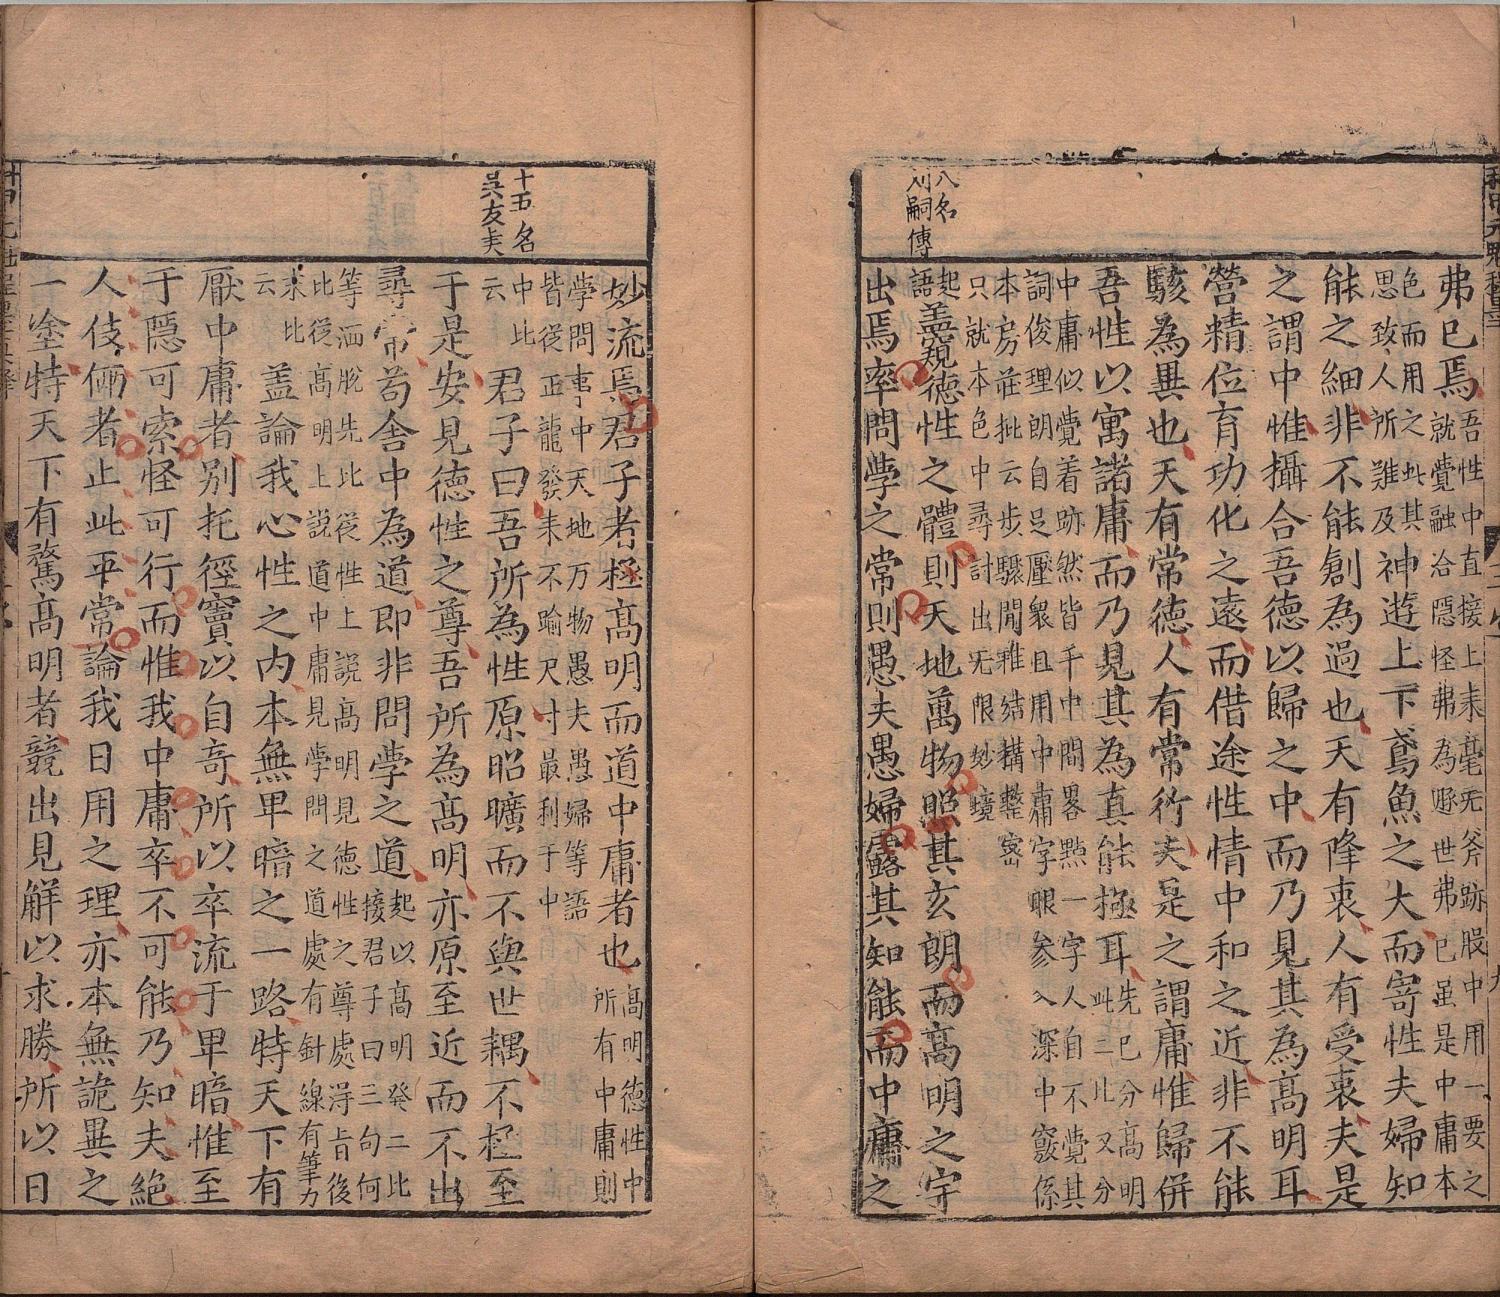 弗已焉吾性中直接上来毫无斧跡股中用一要之
就覺融洽隱怪弗為遯世弗已虽是中庸本
色而用之此其
思致人所难及神遊上下鳶魚之大而寄性夫婦知
能之細非不能創為過也天有降衷人有受衷夫是
之謂中惟攝合吾德以歸之中而乃見其為高明耳
營精位育功化之遠而借途性情中和之近非不能
駭為異也天有常德人有常行夫是之謂庸惟歸併
吾性以寓諸庸而乃見其為真能極耳先已分高明
此二比又分
中庸似覺着跡然皆千中間畧點一字人自不覺其
詞俊理朗自足壓衆且用中庸字眼参入深中竅係
本房莊批云步驟閒雅結構整密
只就本色中尋討出无限妙境
八名
刘嗣傳
起
語盖窺德性之體則天地萬物照其玄朗而高明之宇
出焉率問學之常則愚夫愚婦露其知能而中庸之
妙流焉君子者極高明而道中庸者也高明德性中
所有中庸則
學問事中天地万物愚夫愚婦等語
皆從正龍發来不踰尺寸最利于中
十五名
吳友夫
中比
云君子曰吾所為性原昭曠而不與世耦不極至
于是安見德性之尊吾所為高明亦原至近而不出
尋常苟舍中為道即非問學之道起以高明癸二比
接君子曰三句何
等洒脫先比從性上說高明見德性之尊處得旨後
比從高明上説道中庸見學問之道處有針線有筆力
末比
云盖論我心性之内本無卑暗之一路特天下有
厭中庸者别托徑竇以自奇所以卒流于卑暗惟至
于隱可索怪可行而惟我中庸卒不可能乃知夫絶
人伎倆者止此平常論我日用之理亦本無詭異之
一塗特天下有騖高明者競出見解以求勝所以日